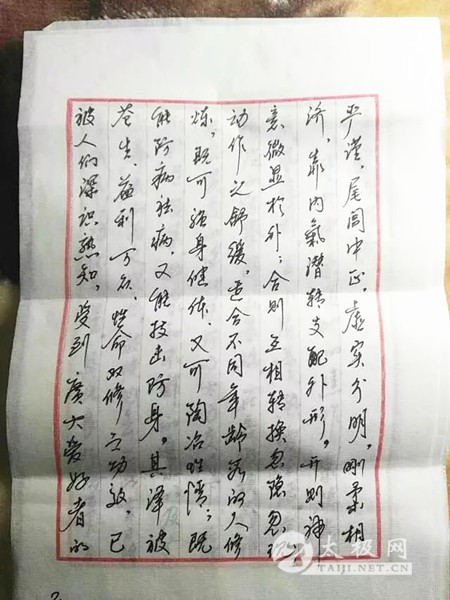 严谨，尾闾中正，虚实分明，刚柔相
济，靠内氣潜转支配外形，开则诸
意微显於外；合则互相转换忽隐忽现
动作之舒缓，适合不同年龄段的人修
炼，既可强身健体，又可陶冶性情；既
能防病祛病，又能技击防身。其泽被
苍生、益利万众，性命双修之功效，已
被人们深识熟知，受到广大爱好者的
太极网
TAIJI.NET.CN